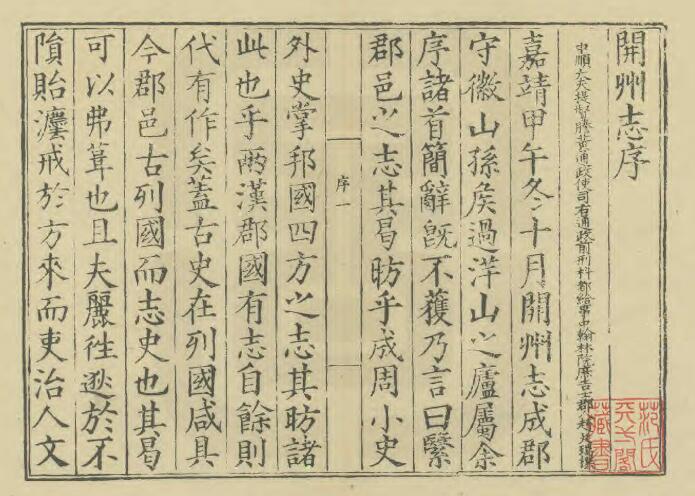 開州志序
中順大夫提督謄黃通政使司右通政前刑科都給事中翰林院庶吉士郡人趙廷瑞撰
嘉靖甲午冬十月開州志成郡
守徽山孫矦過洋山之廬屬余
序諸首簡辭旣不獲乃言曰繄
郡邑之志其曷昉乎成周小史
序一
外史掌邦國四方之志其昉諸
此也乎兩漢郡國有志自餘則
代有作矣蓋古史在列國咸具
今郡邑古列國而志史也其曷
可以弗葺也且夫麗徃逖於不
隕貽灋戒於方來而吏治人文
范氏
天一閣
藏書